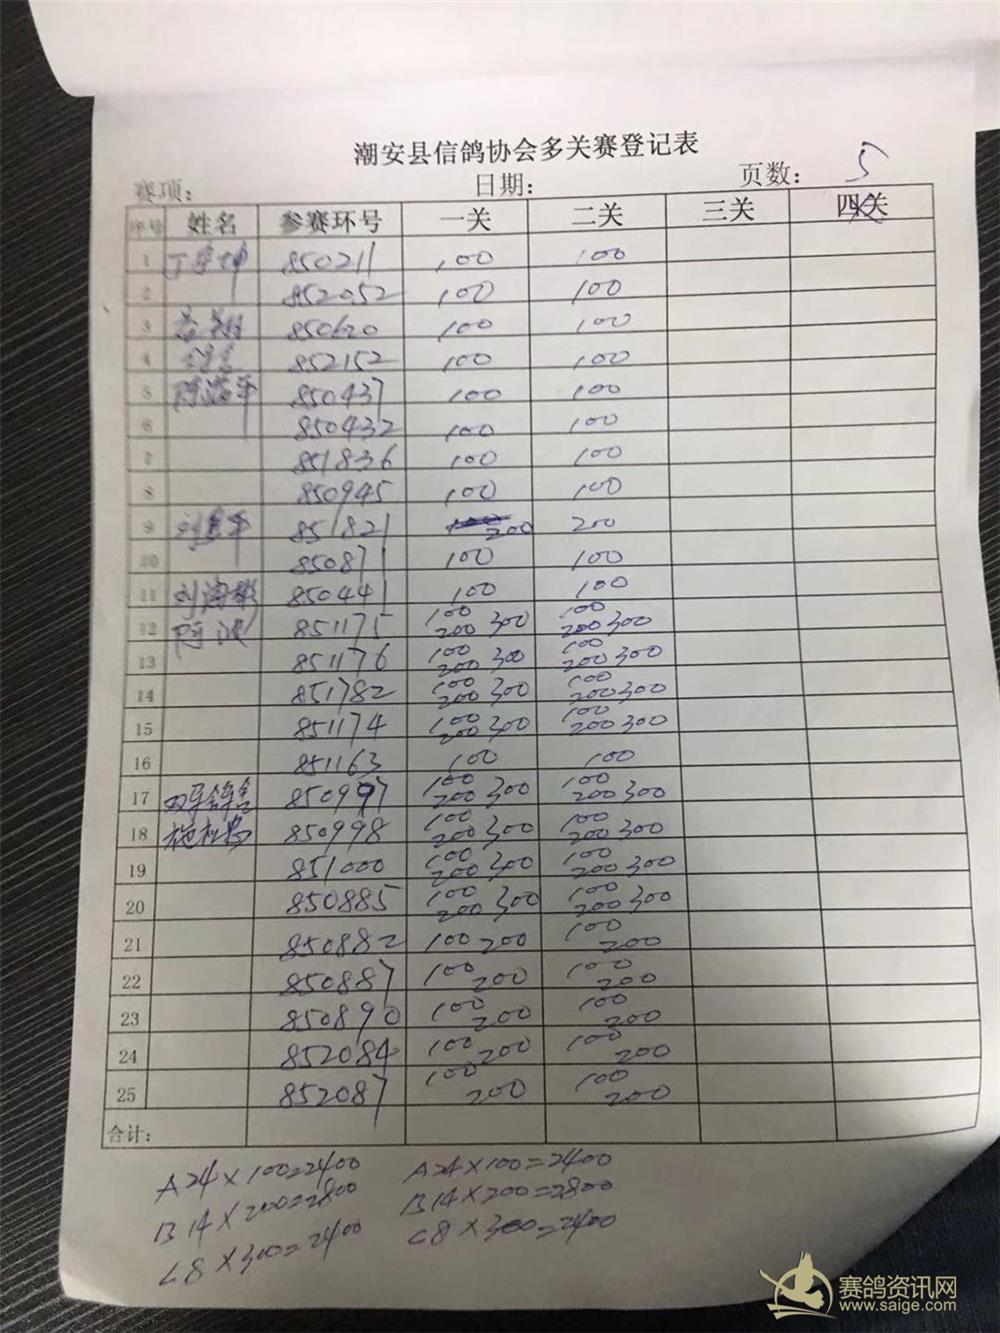 潮安县信鸽协会多关赛登记表
赛项: 日期: 页数: 5
序号 姓名 参赛环号 一关 二关 三关 四关
1 850211 100 100
2 852052 100 100
3 850620 100 100
4 852152 100 100
5 850437 100 100
6 850432 100 100
7 851836 100 100
8 850945 100 100
9 851821 100 200 200
10 850871 100 100
11 850441 100 100
12 851175 100 200 300 100 200 300
13 851176 100 200 300 100 200 300
14 851782 100 200 300 100 200 300
15 851174 100 200 300 100 200 300
16 851163 100 100
17 850997 100 200 300 100 200 300
18 850998 100 200 300 100 200 300
19 851000 100 200 300 100 200 300
20 850885 100 200 300 100 200 300
21 850882 100 200 100 200
22 850887 100 200 100 200
23 850890 100 200 100 200
24 852084 100 200 100 200
25 852087 100 200 100 200
合计:
A24×100=2400 A24×100=2400
B14×200=2800 B14×200=2800
C8×300=2400 C8×300=2400
赛鸽资讯网
www.saige.com